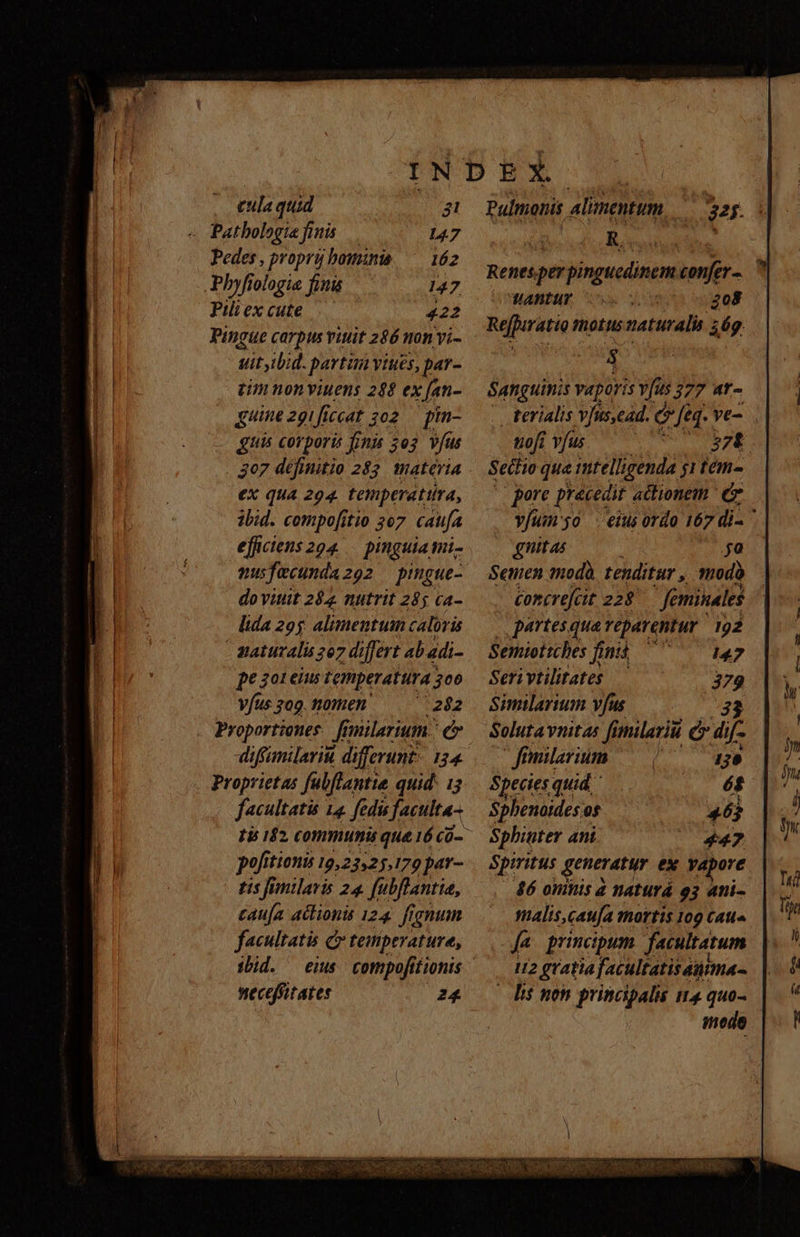 INDEX.
cula quid 31
Pathologiæ finis 147
Pedes, proprij hominis 162
Physiologiæ finis 147
Pili ex cute 422
Pingue corpus viuit 286 non vi-
uit, ibid. partim viues, par-
tim non viuens 288 ex san-
guine 291 siccat 302 pin-
guis corporis finis 303 vsus
307 definitio 283 materia
ex qua 294 temperatura,
ibid. compositio 307 causa
efficiens 294 pinguia mi-
nus fœcunda 292 pingue-
do viuit 284 nutrit 285 ca-
lida 295 alimentum caloris
naturalis 307 differt ab adi-
pe 301 eius temperatura 300
vsus 309. nomen 282
Proportiones similarium &
dissimilariū differunt 134
Proprietas substantiæ quid 13
facultatis 14 sedis faculta-
tis 182 communis quæ 16 cō-
positionis 19,23,25,179 par-
tis similaris 24 substantiæ,
causa actionis 124 signum
facultatis & temperaturæ,
ibid. eius compositionis
necessitates 24
Pulmonis alimentum 325.
R.
Renes per pinguedinem conser-
uantur 308
Respiratio motus naturalis 369
S
Sanguinis vaporis vsus 377 ar-
terialis vsus, ead. & seq. ve-
nosi vsus 378
Sectio quæ intelligenda 51 tem-
pore præcedit actionem &
vsum 50 eius ordo 167 di-
gnitas 50
Semen modò tenditur, modò
concrescit 228 seminales
partes qua reparentur 192
Semiotiches finis 147
Seri vtilitates 379
Similarium vsus 33
Soluta vnitas similariū & dis-
similarium 130
Species quid 68
Sphenoides os 463
Sphinter ani 447
Spiritus generatur ex vapore
86 omnis à naturâ 93 ani-
malis, causa mortis 109 cau-
sa principum facultatum
112 gratia facultatis anima-
lis non principalis 114 quo-
modo